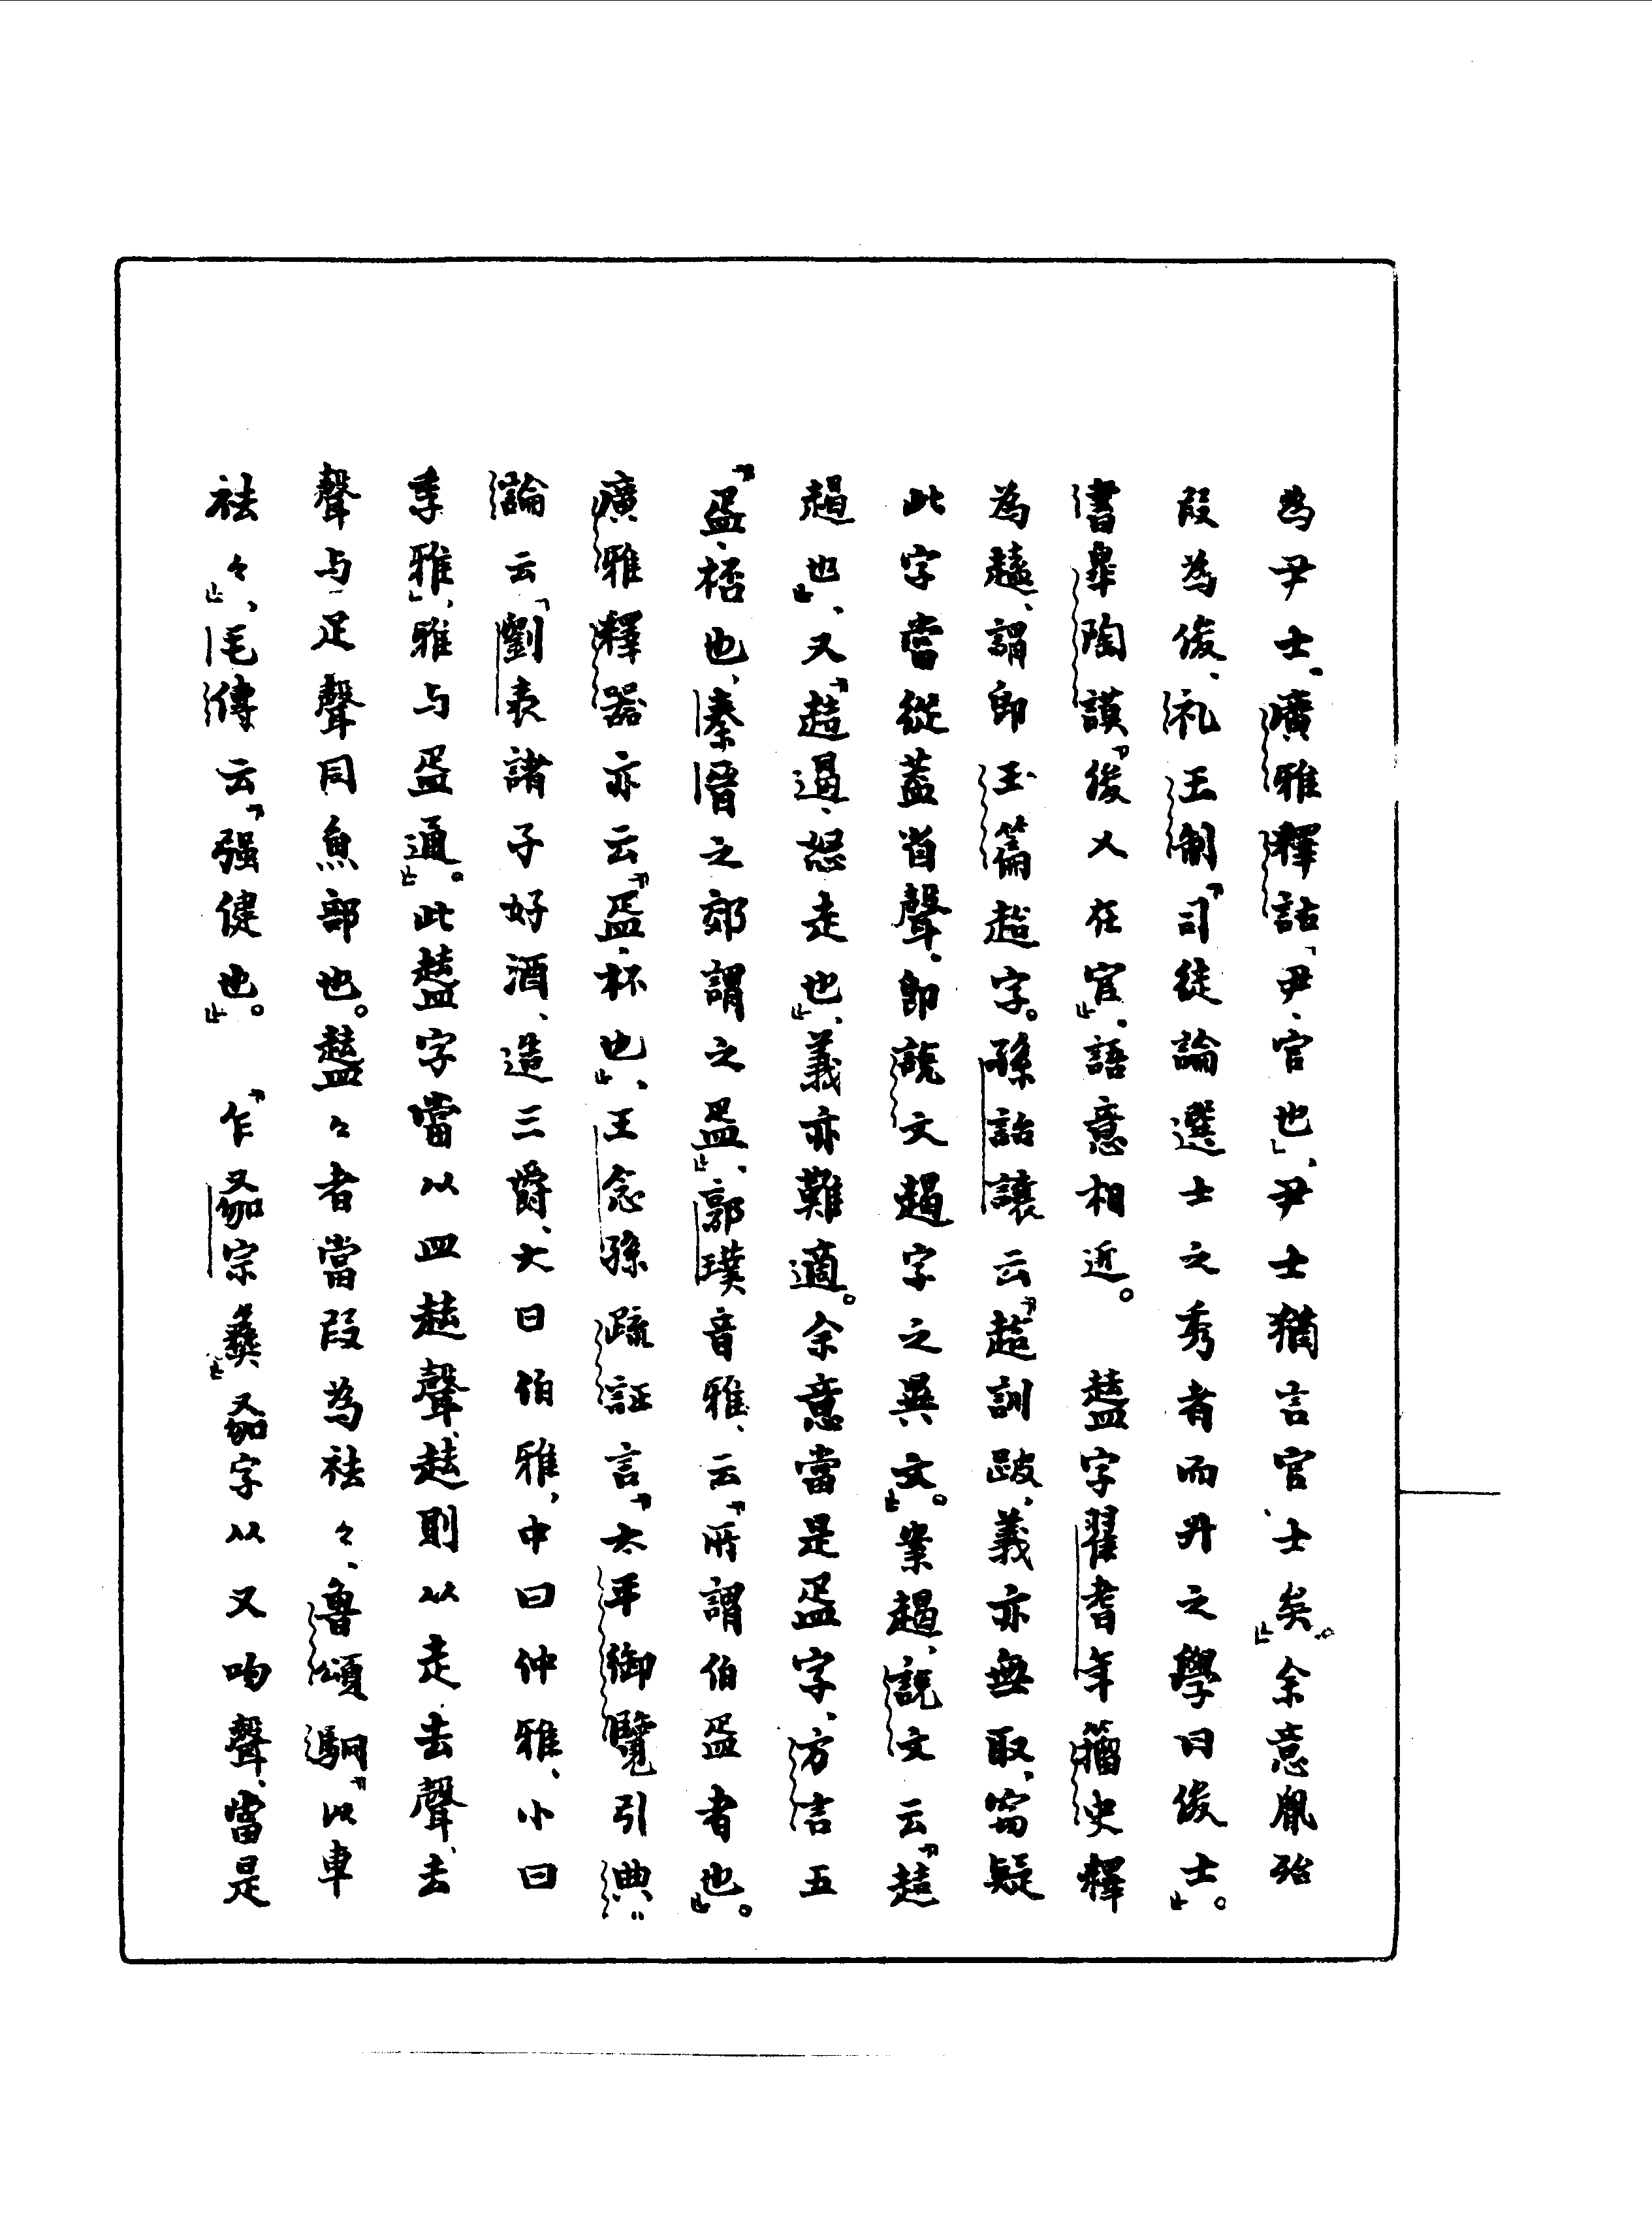 為尹士、廣雅釋詁「尹、官也」、尹士猶言官、士矣。』余意胤殆
叚為俊、礼王制『司徒論選士之秀者而升之學曰俊士』。
書皋陶謨『俊乂在官』、語意相近。　字翟耆年籀史釋
為、謂即玉篇字。孫詒讓云『訓跛、義亦無取、窃疑
此字當從蓋省聲、即說文趨字之異文。』案趨、說文云『
趨也』、又『、怒走也』、義亦難適。余意當是盇字、方言五
『盇、桮也、秦晉之郊謂之盇』、郭璞音雅、云『所謂伯盇者也』。
廣雅釋器亦云『盇、杯也』、王念孫疏証言『太平御覽引典〻
論云「劉表諸子好酒、造三爵、大曰伯雅、中曰仲雅、小曰
季雅」、雅与盇通。』此字當以皿聲、則以走去聲、去
聲与疋聲同魚部也。〻者當叚為祛〻、魯頌駉『以車
祛〻』、毛傳云『强健也』。　『乍宗彝』字以又吻聲、當是